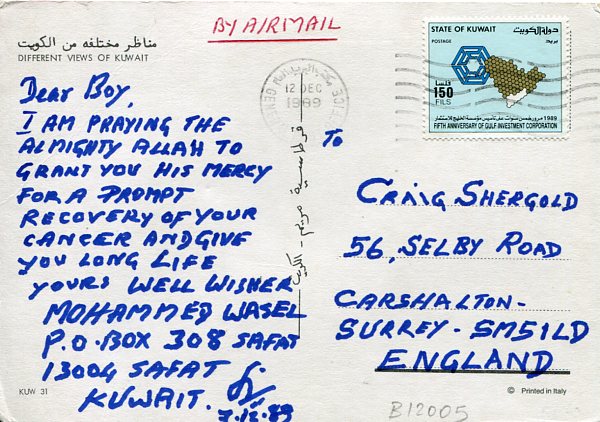 BY AIRMAIL
مناظر مختلفه من الكويت
DIFFERENT VIEWS OF KUWAIT
Dear Boy,
I AM PRAYING THE
ALMIGHTY ALLAH TO
GRANT YOU HIS MERCY
FOR A PROMPT
RECOVERY OF YOUR
CANCER AND GIVE
YOU LONG LIFE
YOURS WELL WISHER
MOHAMMED WASEL
P.O.BOX 308 SAFAT
13004 SAFAT
KUWAIT.
7.12.89
KUW 31
12 DEC
1989
STATE OF KUWAIT
دولة الكويت
POSTAGE
بريد
فلسا
150
FILS
1989 مرور خمس سنوات على تأسيس مؤسسة الخليج للاستثمار
FIFTH ANNIVERSARY OF GULF INVESTMENT CORPORATION
To
CRAIG SHERGOLD
56, SELBY ROAD
CARSHALTON-
SURREY - SM51LD
ENGLAND
© Printed in Italy
B12005